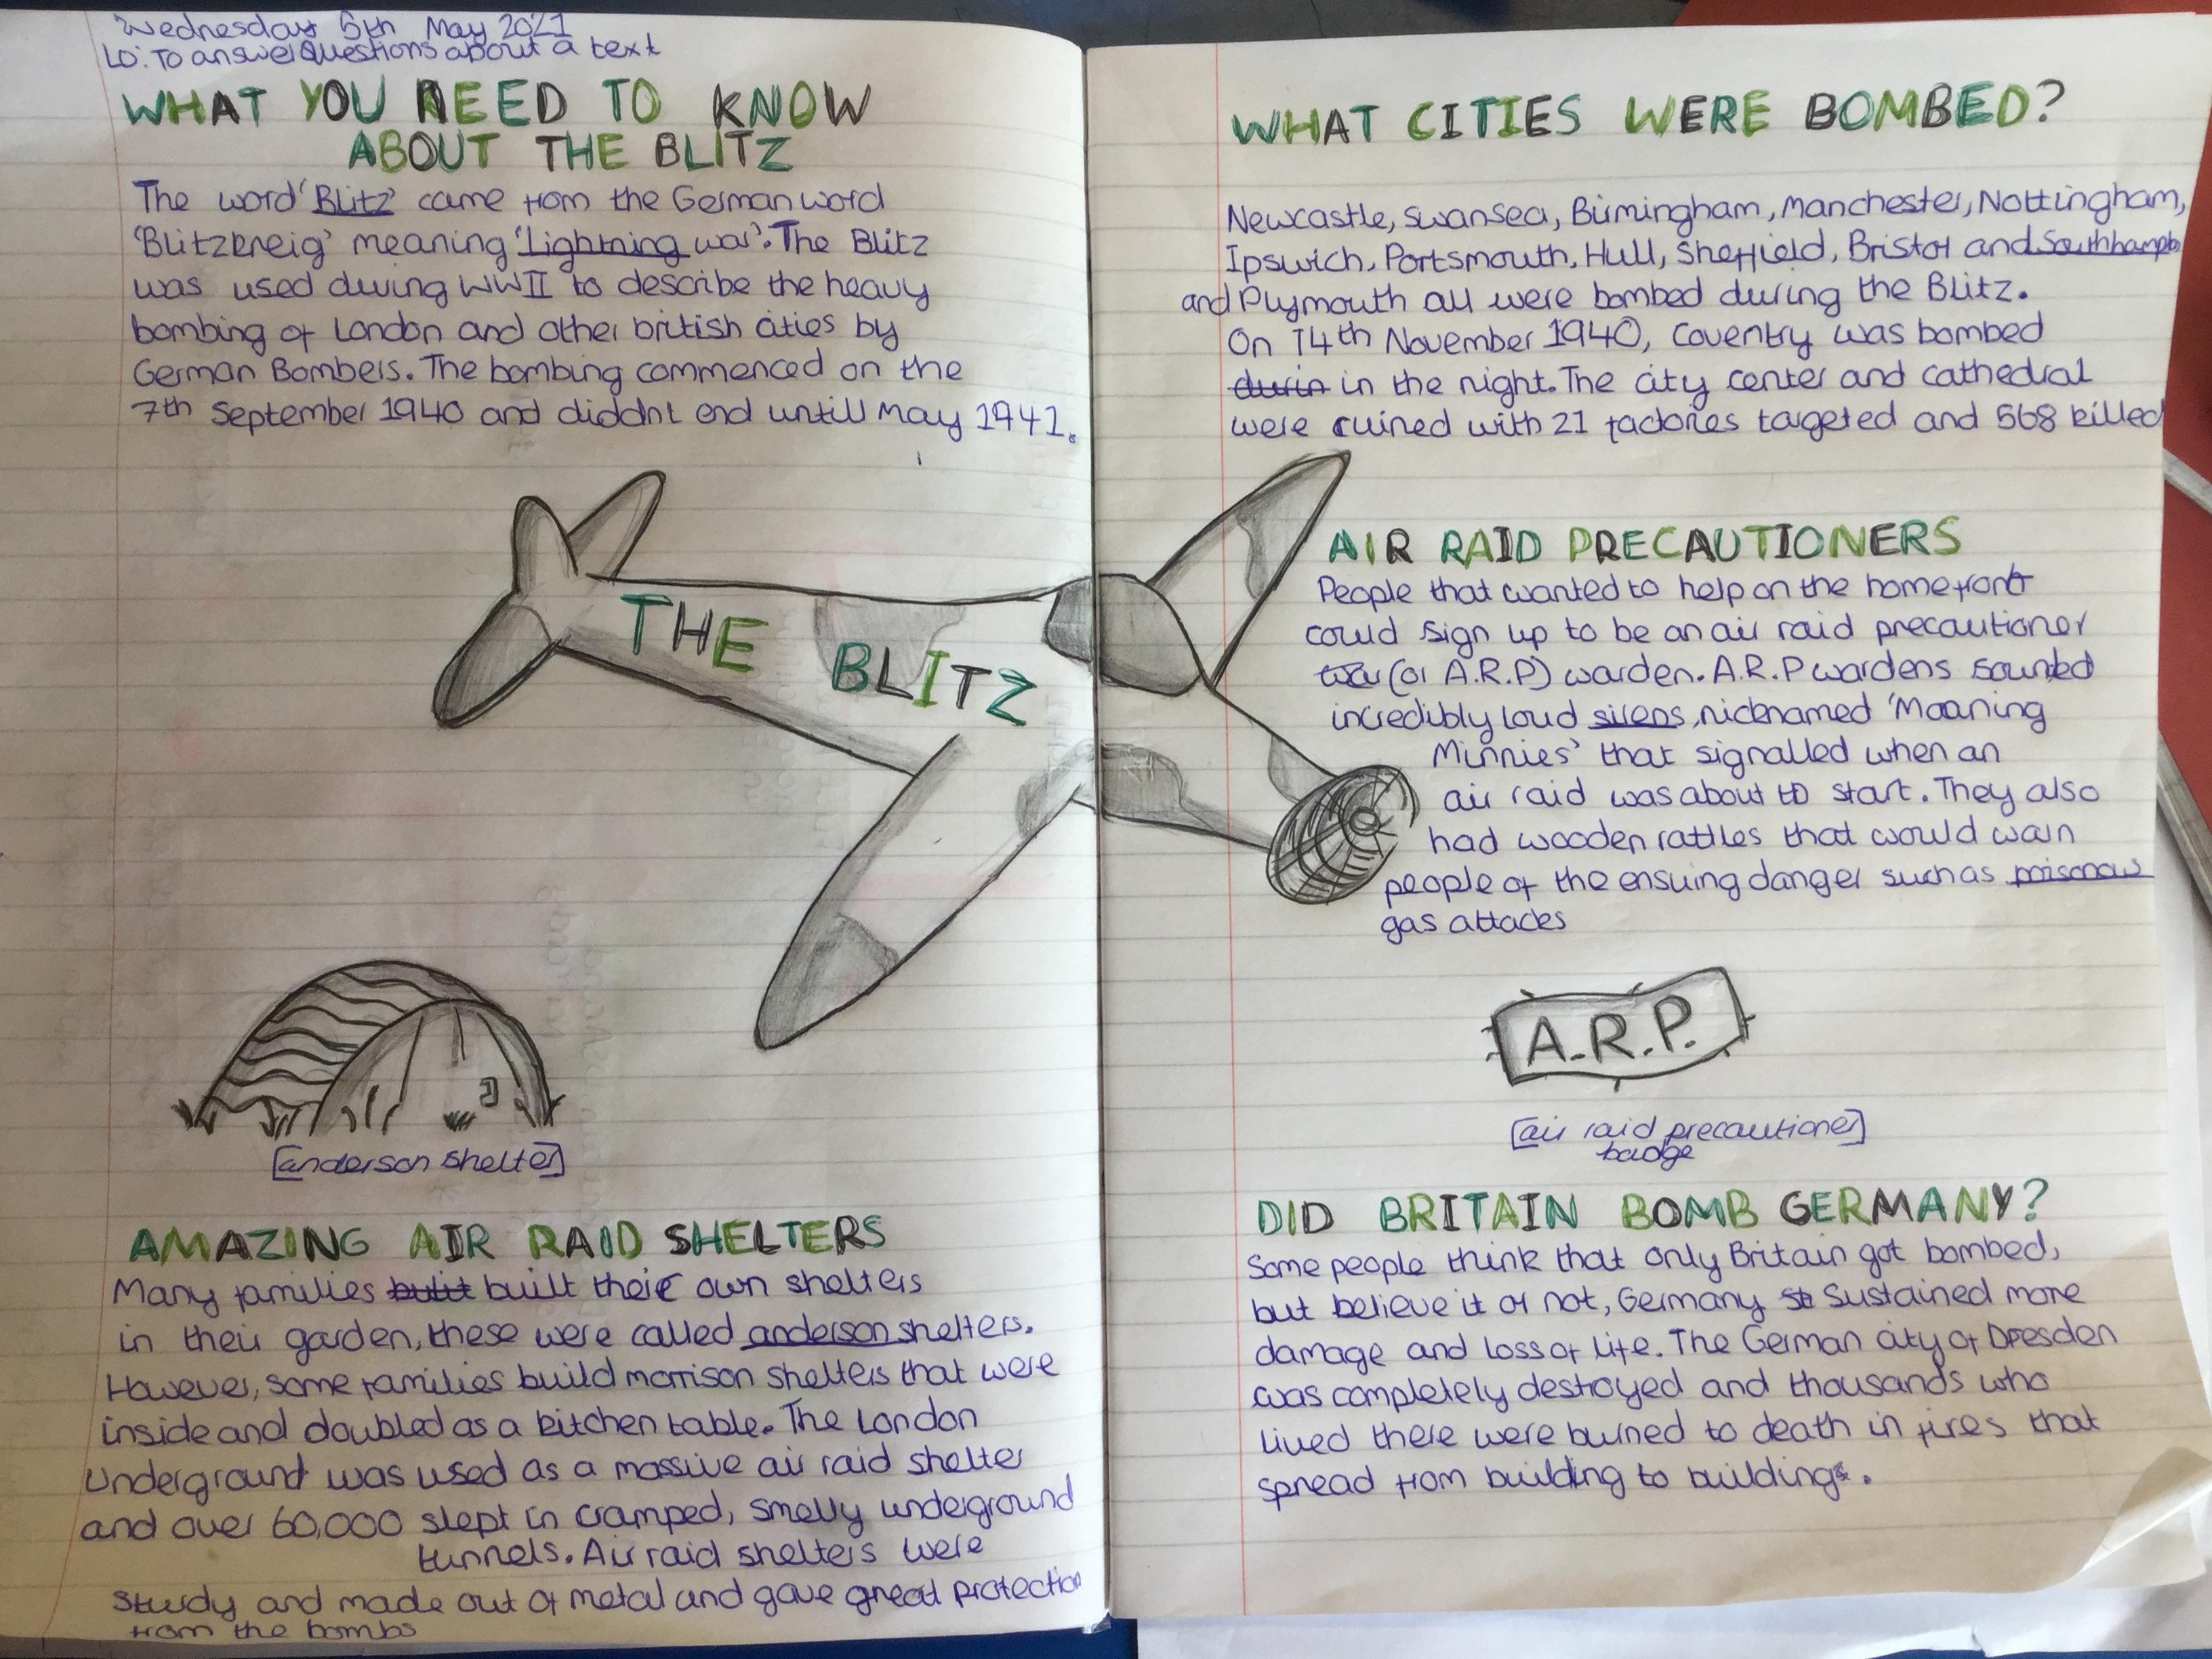 Wednesday 5th May 2021
LO: To answer Questions about a text
WHAT YOU NEED TO KNOW
ABOUT THE BLITZ
The word 'Blitz' came from the German word
'Blitzkreig' meaning 'Lightning war'. The Blitz
was used during WWII to describe the heavy
bombing of London and other british cities by
German Bombers. The bombing commenced on the
7th September 1940 and diddnt end untill May 1941.
THE BLITZ
[anderson shelter]
AMAZING AIR RAID SHELTERS
Many families built their own shelters
in their garden, these were called anderson shelters.
However, some families build morrison shelters that were
inside and doubled as a kitchen table. The London
Underground was used as a massive air raid shelter
and over 60,000 slept in cramped, smelly underground
tunnels. Air raid shelters were
sturdy and made out of metal and gave great protection
from the bombs
WHAT CITIES WERE BOMBED?
Newcastle, Swansea, Birmingham, Manchester, Nottingham,
Ipswich, Portsmouth, Hull, Sheffield, Bristol and
and Plymouth all were bombed during the Blitz.
On 14th November 1940, Coventry was bombed
durin in the night. The city center and cathedral
were ruined with 21 factories targeted and 568 killed
AIR RAID PRECAUTIONERS
People that wanted to help on the homefront
could sign up to be an air raid precautioner
(or A.R.P) warden. A.R.P wardens sounded
incredibly loud sirens, nicknamed 'Moaning
Minnies' that signalled when an
air raid was about to start. They also
had wooden rattles that would warn
people of the ensuing danger such as
gas attacks
A.R.P.
[air raid precautioner]
badge
DID BRITAIN BOMB GERMANY?
Some people think that only Britain got bombed,
but believe it or not, Germany Sustained more
damage and loss of life. The German city of Dresden
was completely destroyed and thousands who
lived there were burned to death in fires that
spread from building to building.